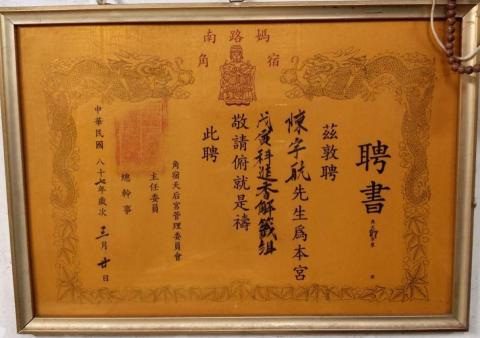 南路媽
角宿
聘書
茲敦聘
陳宇航先生爲本宮
戊寅科進香解籤組
敬請俯就是禱
此聘
角宿天后宮管理委員會
主任委員
總幹事
中華民國八十七年歲次三月廿日